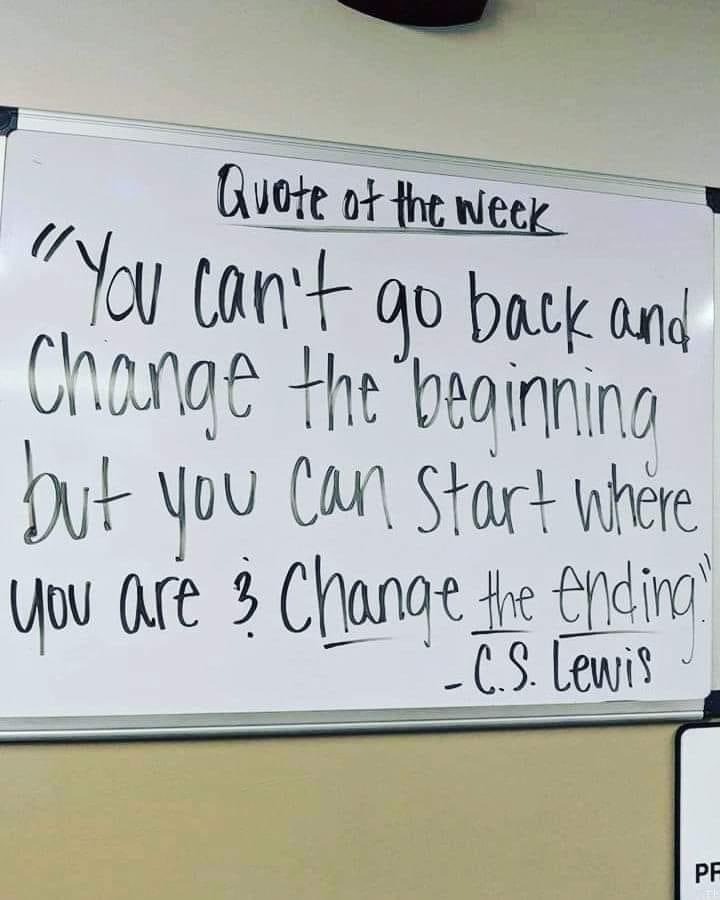 Quote of the Week
"You can't go back and
change the beginning
but you can start where
you are & change the ending."
-C.S. Lewis
PF